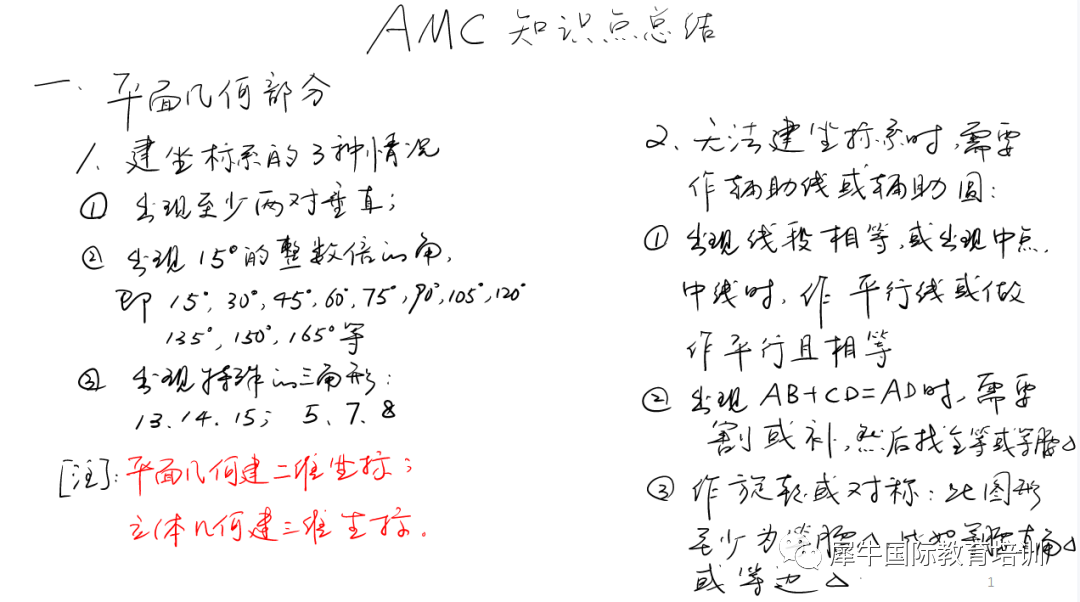 AMC 知识点总结
一、平面几何部分
1、建坐标系的3种情况
① 出现至少两对垂直;
② 出现15°的整数倍的角,
即15°,30°,45°,60°,75°,90°,105°,120°
135°,150°,165°等
③ 出现特殊的三角形:
13、14、15; 5、7、8
[注]:平面几何建二维坐标;
立体几何建三维坐标。
2、无法建坐标系时,需要
作辅助线或辅助圆:
① 出现线段相等,或出现中点,
中线时,作平行线或做
作平行且相等
② 出现AB+CD=AD时,需要
割或补,然后找全等或等腰△
③ 作旋转或对称:此图形
至少为等腰△,比如等腰直角△
或等边△
犀牛国际教育培训
1